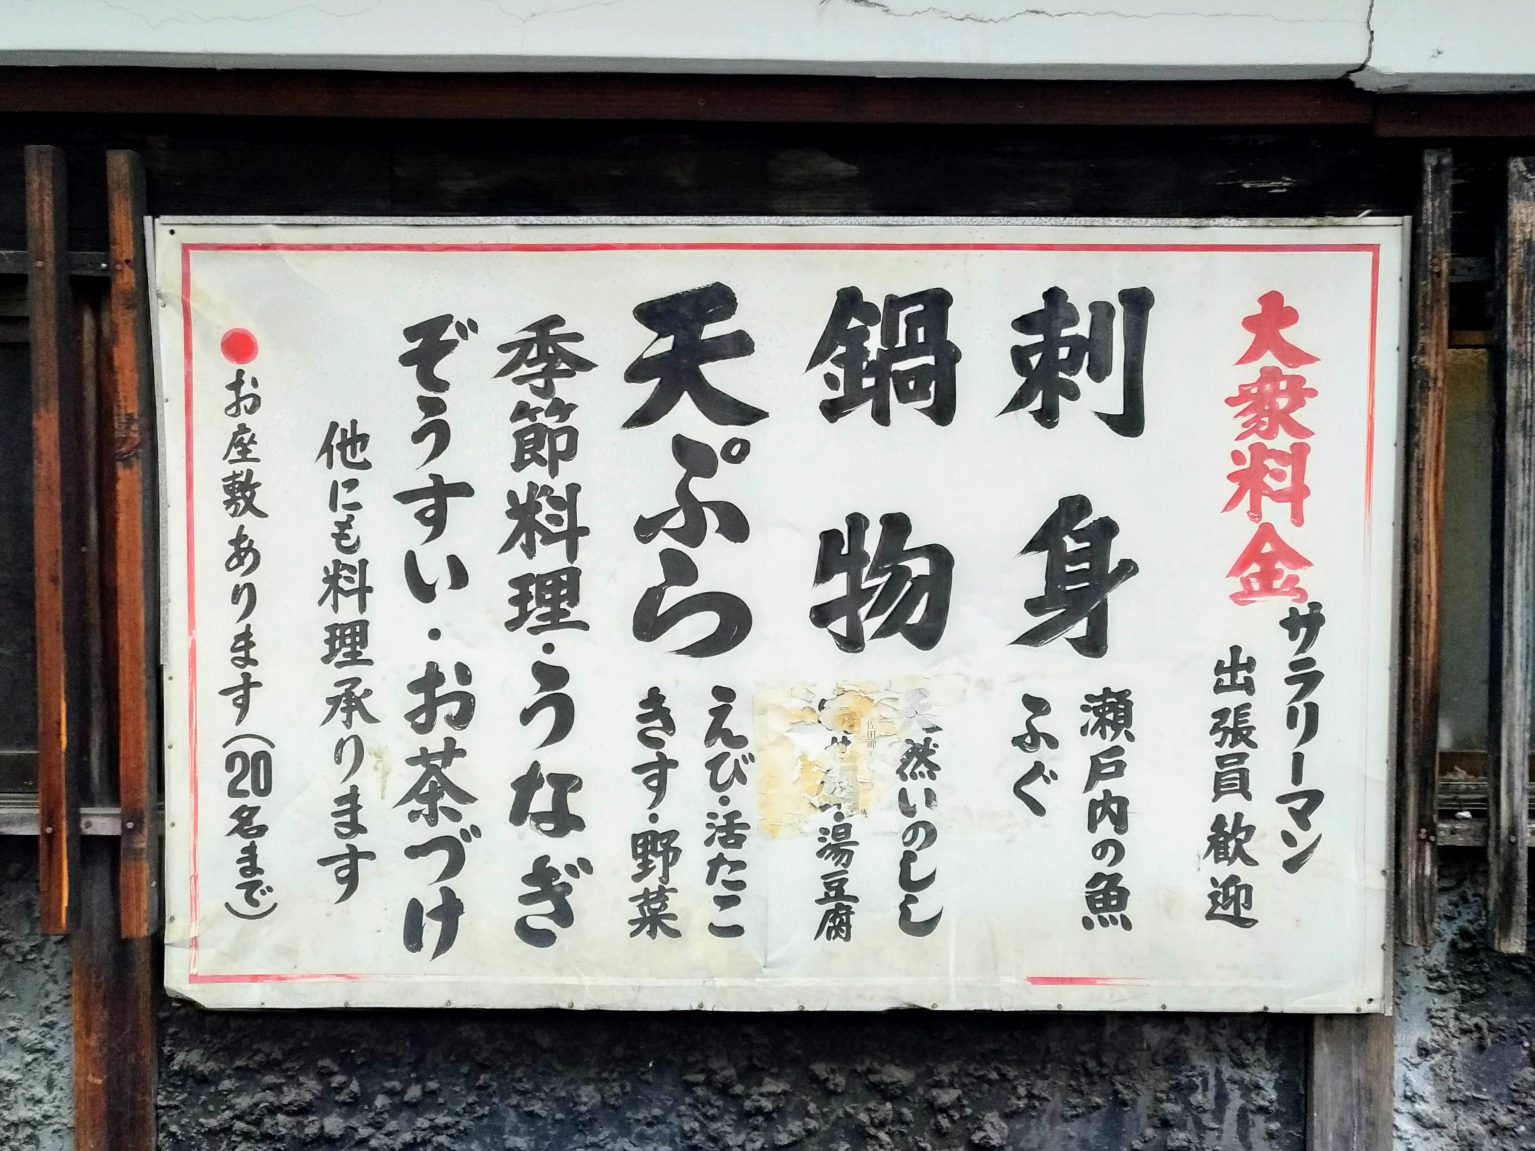 大衆料金
サラリーマン
出張員歓迎
刺身
瀬戸内の魚
ふぐ
鍋物
天然いのしし
湯豆腐
天ぷら
えび・活たこ
きす・野菜
季節料理・うなぎ
ぞうすい・お茶づけ
他にも料理承ります
●お座敷あります(20名まで)